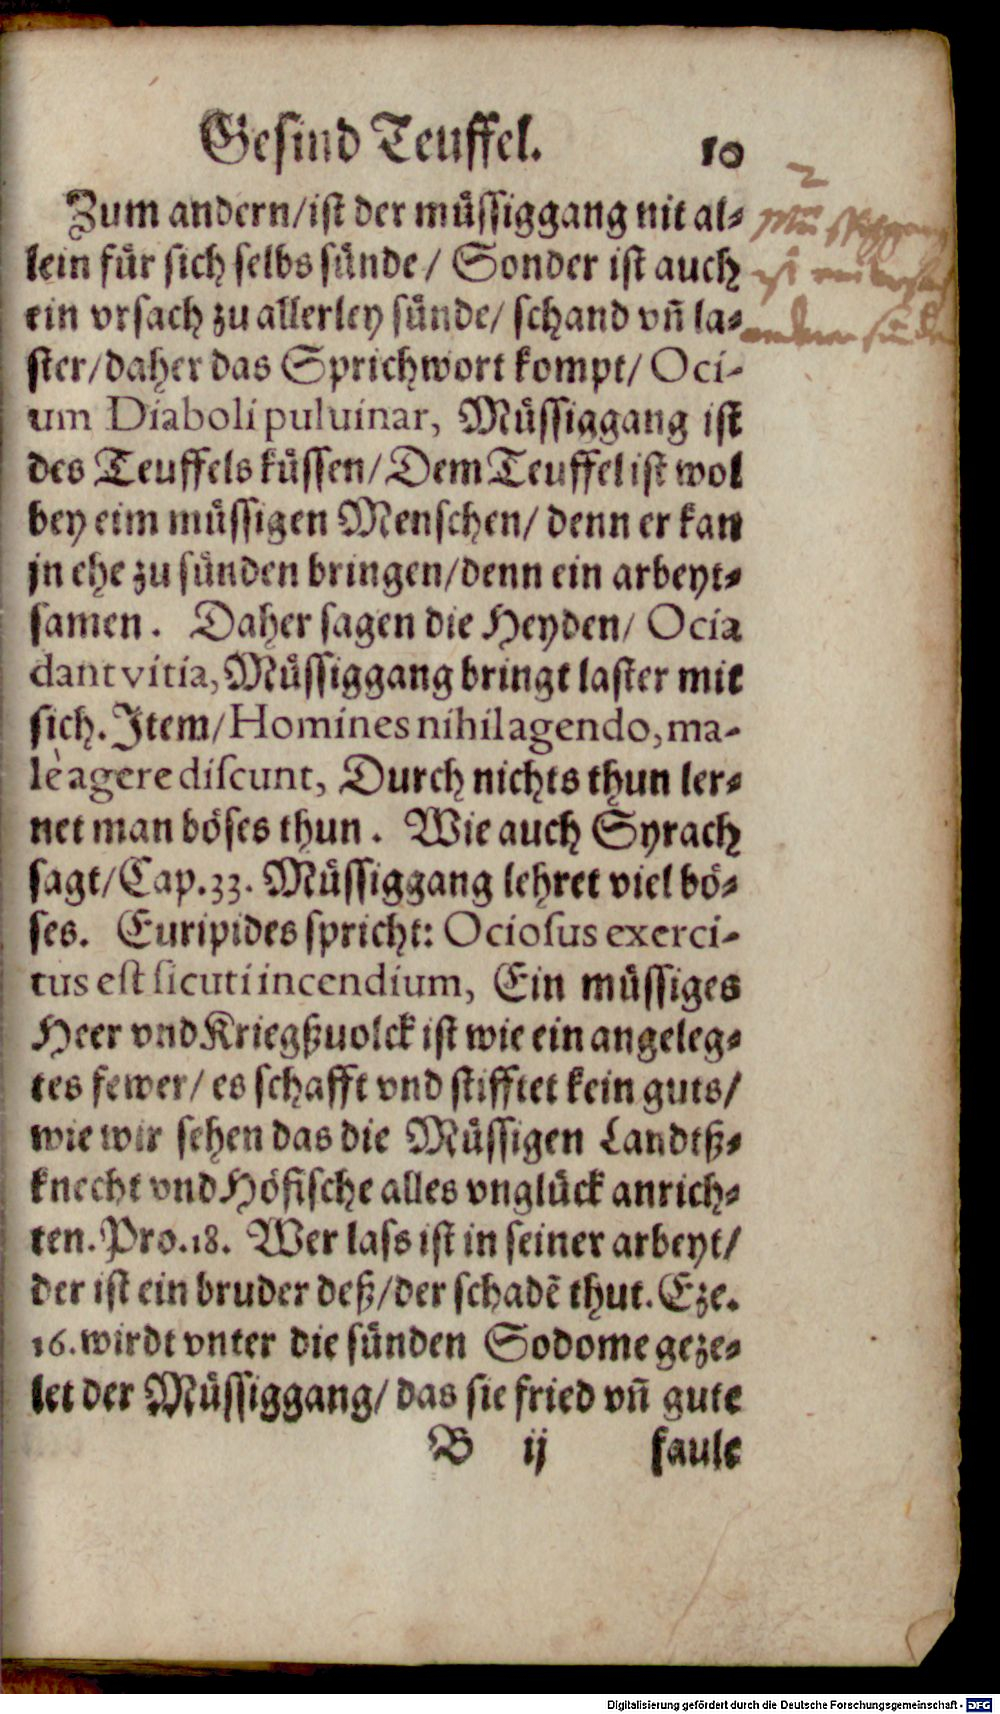 Gesind Teuffel. 10
Zum andern/ist der müssiggang nit al-
lein für sich selbs sünde/ Sonder ist auch
ein vrsach zu allerley sünde/ schand vñ la-
ster/daher das Sprichwort kompt/ Oci-
um Diaboli puluinar, Müssiggang ist
des Teuffels küssen/Dem Teuffel ist wol
bey eim müssigen Menschen/ denn er kan
jn ehe zu sünden bringen/denn ein arbeyt-
samen. Daher sagen die Heyden/ Ocia
dant vitia, Müssiggang bringt laster mit
sich. Item/Homines nihil agendo, ma-
lè agere discunt, Durch nichts thun ler-
net man böses thun. Wie auch Syrach
sagt/Cap.33. Müssiggang lehret viel bö-
ses. Euripides spricht: Ociosus exerci-
tus est sicuti incendium, Ein müssiges
Heer vnd Kriegßuolck ist wie ein angeleg-
tes fewer/ es schafft vnd stifftet kein guts/
wie wir sehen das die Müssigen Landtß-
knecht vnd Höfische alles vnglück anrich-
ten. Pro.18. Wer lass ist in seiner arbeyt/
der ist ein bruder deß/der schadẽ thut. Eze.
16. wirdt vnter die sünden Sodome geze-
let der Müssiggang/ das sie fried vñ gute
B ij faule
2
Müssiggang
ist ein vrsach
anderer sünden
Digitalisierung gefördert durch die Deutsche Forschungsgemeinschaft - DFG